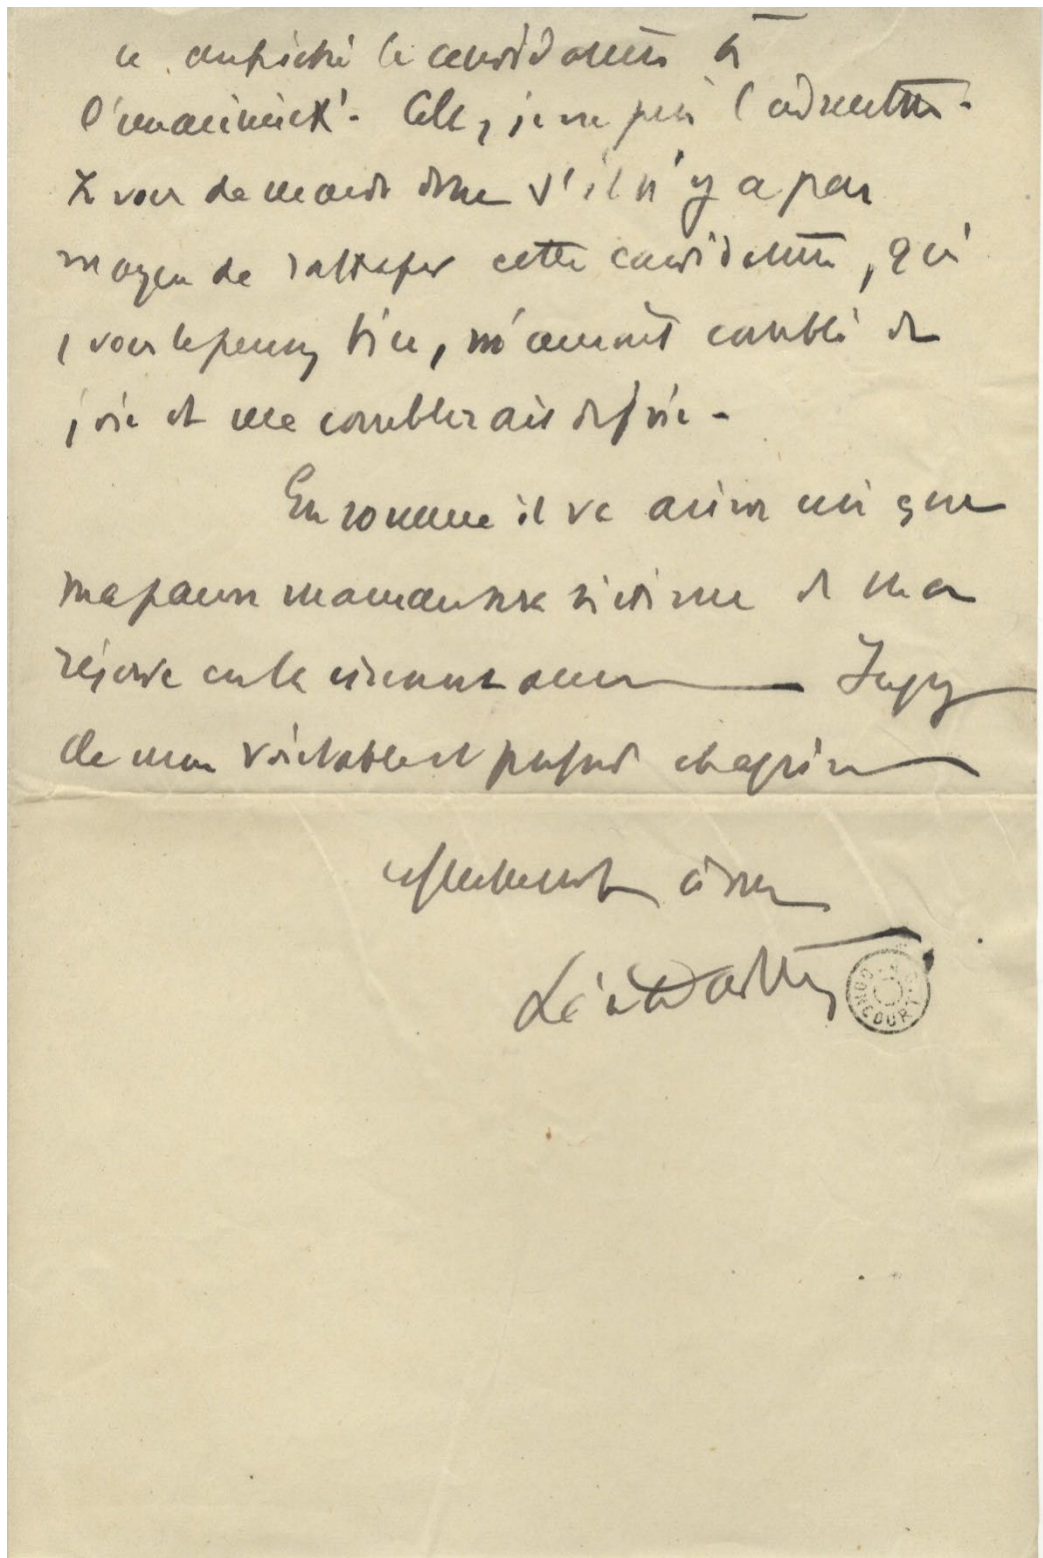 a empêché la candidature à
l'unanimité. Cela, je ne puis l'admettre.
Je vous demande donc s'il n'y a pas
moyen de rattraper cette candidature, qui
, vous le pensez bien, m'aurait comblé de
joie et me comblerait de joie -
En somme il va ainsi que
ma pauvre maman sera victime de ma
réserve en la circonstance Jugez
de mon véritable et profond chagrin
à vous
Léon Daudet
GONCOURT